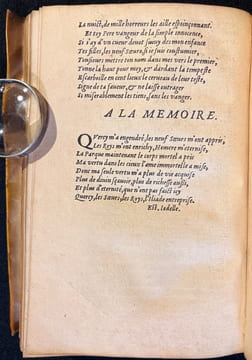 La nuict, de mille horreurs les aille espoinçonnant.
Et toy Pere vangeur de la simple innocence,
Si i'ay d'un cueur devot suivy des mon enfance
Tes filles, les neuf Sœurs, si ie suis coustumier,
Tousiours mettre ton nom dans mes vers le premier,
Tonne là haut pour moy, & dardant la tempeste
Escarbille en cent lieux le cerveau de leur teste,
Signe de ta faveur, & ne laisse outrager
Si miserablement les tiens, sans les vanger.
A LA MEMOIRE.
QVercy m'a engendré, les neuf Sœurs m'ont appris,
Les Roys m'ont enrichy, Homere m'eternise,
La Parque maintenant le corps mortel a pris
Ma vertu dans les cieux l'ame immortelle a mise,
Donc ma seule vertu m'a plus de vie acquise
Plus de divin sçavoir, plus de richesse aussi,
Et plus d'eternité, que n'ont pas faict icy
Quercy, les Sœurs, les Roys, l'Iliade entreprise.
Est. Iodelle.